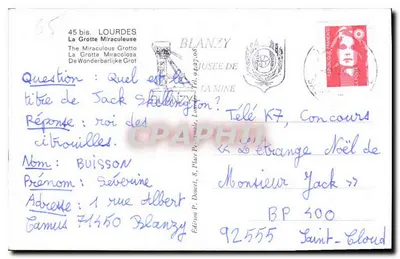 65
45 bis. LOURDES
La Grotte Miraculeuse
The Miraculous Grotto
La Grotta Miracolosa
De Wonderbarlijke Grot
BLANZY
MUSEE DE
LA MINE
Question : Quel est le
titre de Jack Skellington ?
Réponse : roi des
citrouilles.
Nom : BUISSON
Prénom : Séverine
Adresse : 1 rue Albert
Camus 71450 Blanzy
Télé K7, Concours
« L'étrange Noël de
Monsieur Jack »
BP 400
92555 Saint-Cloud